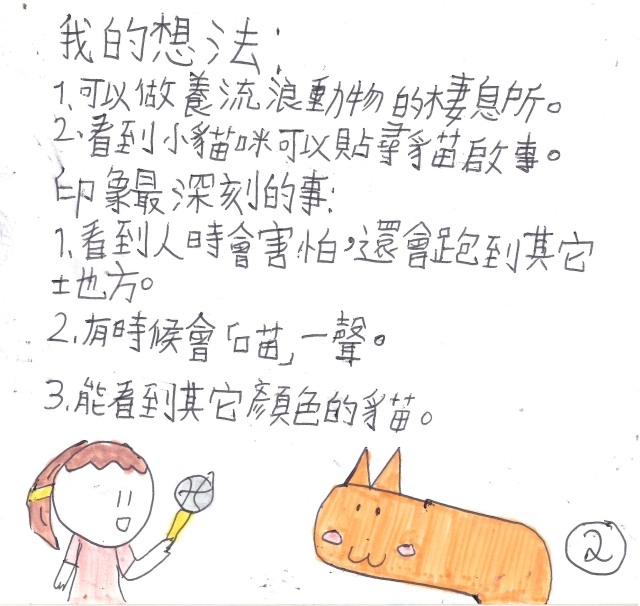 我的想法:
1.可以做養流浪動物的棲息所。
2.看到小貓咪可以貼尋貓啟事。
印象最深刻的事:
1.看到人時會害怕，還會跑到其它
地方。
2.有時候會「喵」一聲。
3.能看到其它顏色的貓。
2